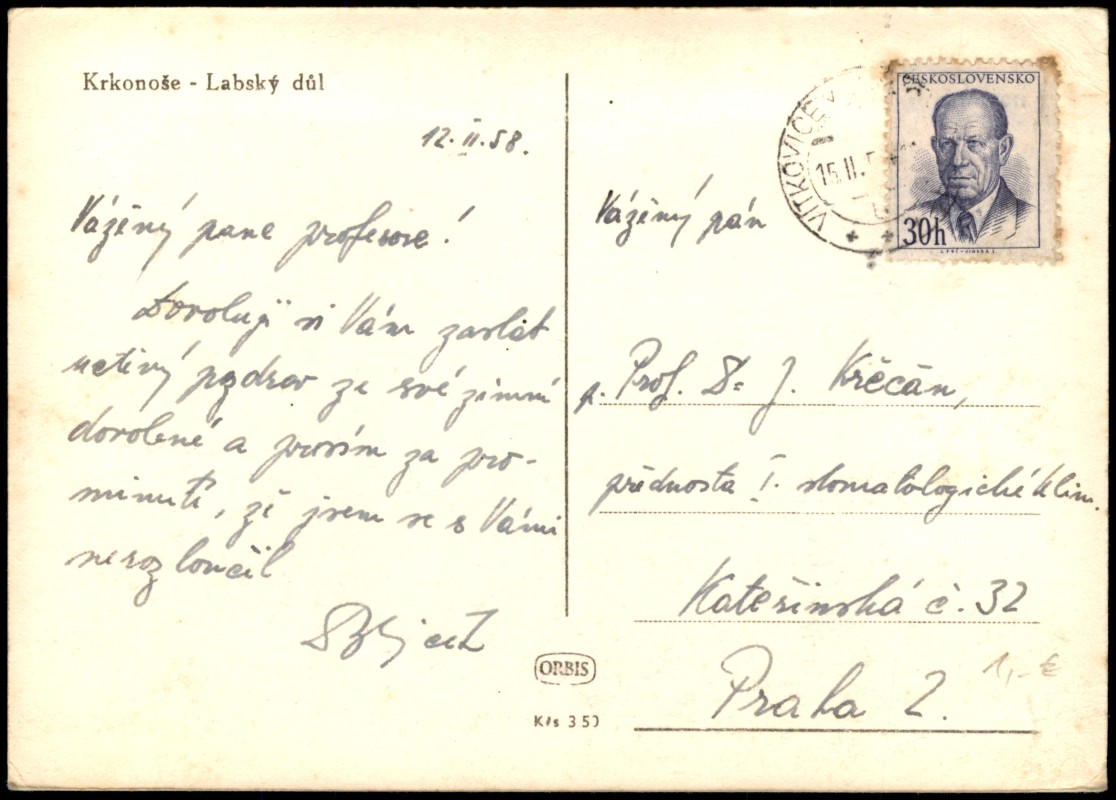 Krkonoše - Labský důl
12.II.58.
Vážený pane profesore!
Dovoluji si Vám zaslat
uctivý pozdrav ze své zimní
dovolené a prosím za pro-
minutí, že jsem se s Vámi
nerozloučil
Vážený pán
p. Prof. Dr J. Křečan,
přednosta I. stomatologické klin.
Kateřinská č. 32
Praha 2.
ČESKOSLOVENSKO
30h
VITKOVICE V
15.II.5
ORBIS
K/s 350
1,- €